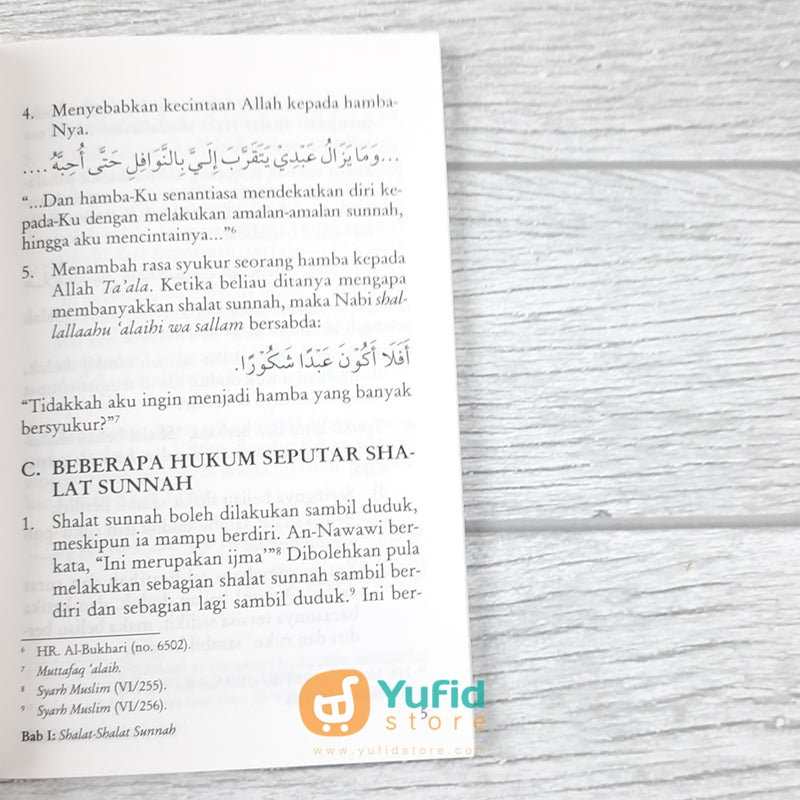 4. Menyebabkan kecintaan Allah kepada hamba-
Nya.
...وَمَا يَزَالُ عَبْدِيْ يَتَقَرَّبَ إِلَيَّ بِالنَّوَافِلِ حَتَّى أُحِبَّهُ....
“...Dan hamba-Ku senantiasa mendekatkan diri ke-
pada-Ku dengan melakukan amalan-amalan sunnah,
hingga aku mencintainya...”⁶
5. Menambah rasa syukur seorang hamba kepada
Allah Ta’ala. Ketika beliau ditanya mengapa
membanyakkan shalat sunnah, maka Nabi shal-
lallaahu ‘alaihi wa sallam bersabda:
أَفَلَا أَكُوْنَ عَبْدًا شَكُوْرًا.
“Tidakkah aku ingin menjadi hamba yang banyak
bersyukur?”⁷
C. BEBERAPA HUKUM SEPUTAR SHA-
LAT SUNNAH
1. Shalat sunnah boleh dilakukan sambil duduk,
meskipun ia mampu berdiri. An-Nawawi ber-
kata, “Ini merupakan ijma’”⁸ Dibolehkan pula
melakukan sebagian shalat sunnah sambil ber-
diri dan sebagian lagi sambil duduk.⁹ Ini ber-
⁶ HR. Al-Bukhari (no. 6502).
⁷ Muttafaq ‘alaih.
⁸ Syarh Muslim (VI/255).
⁹ Syarh Muslim (VI/256).
Bab I: Shalat-Shalat Sunnah
5
Yufid
store
www.yufidstore.com